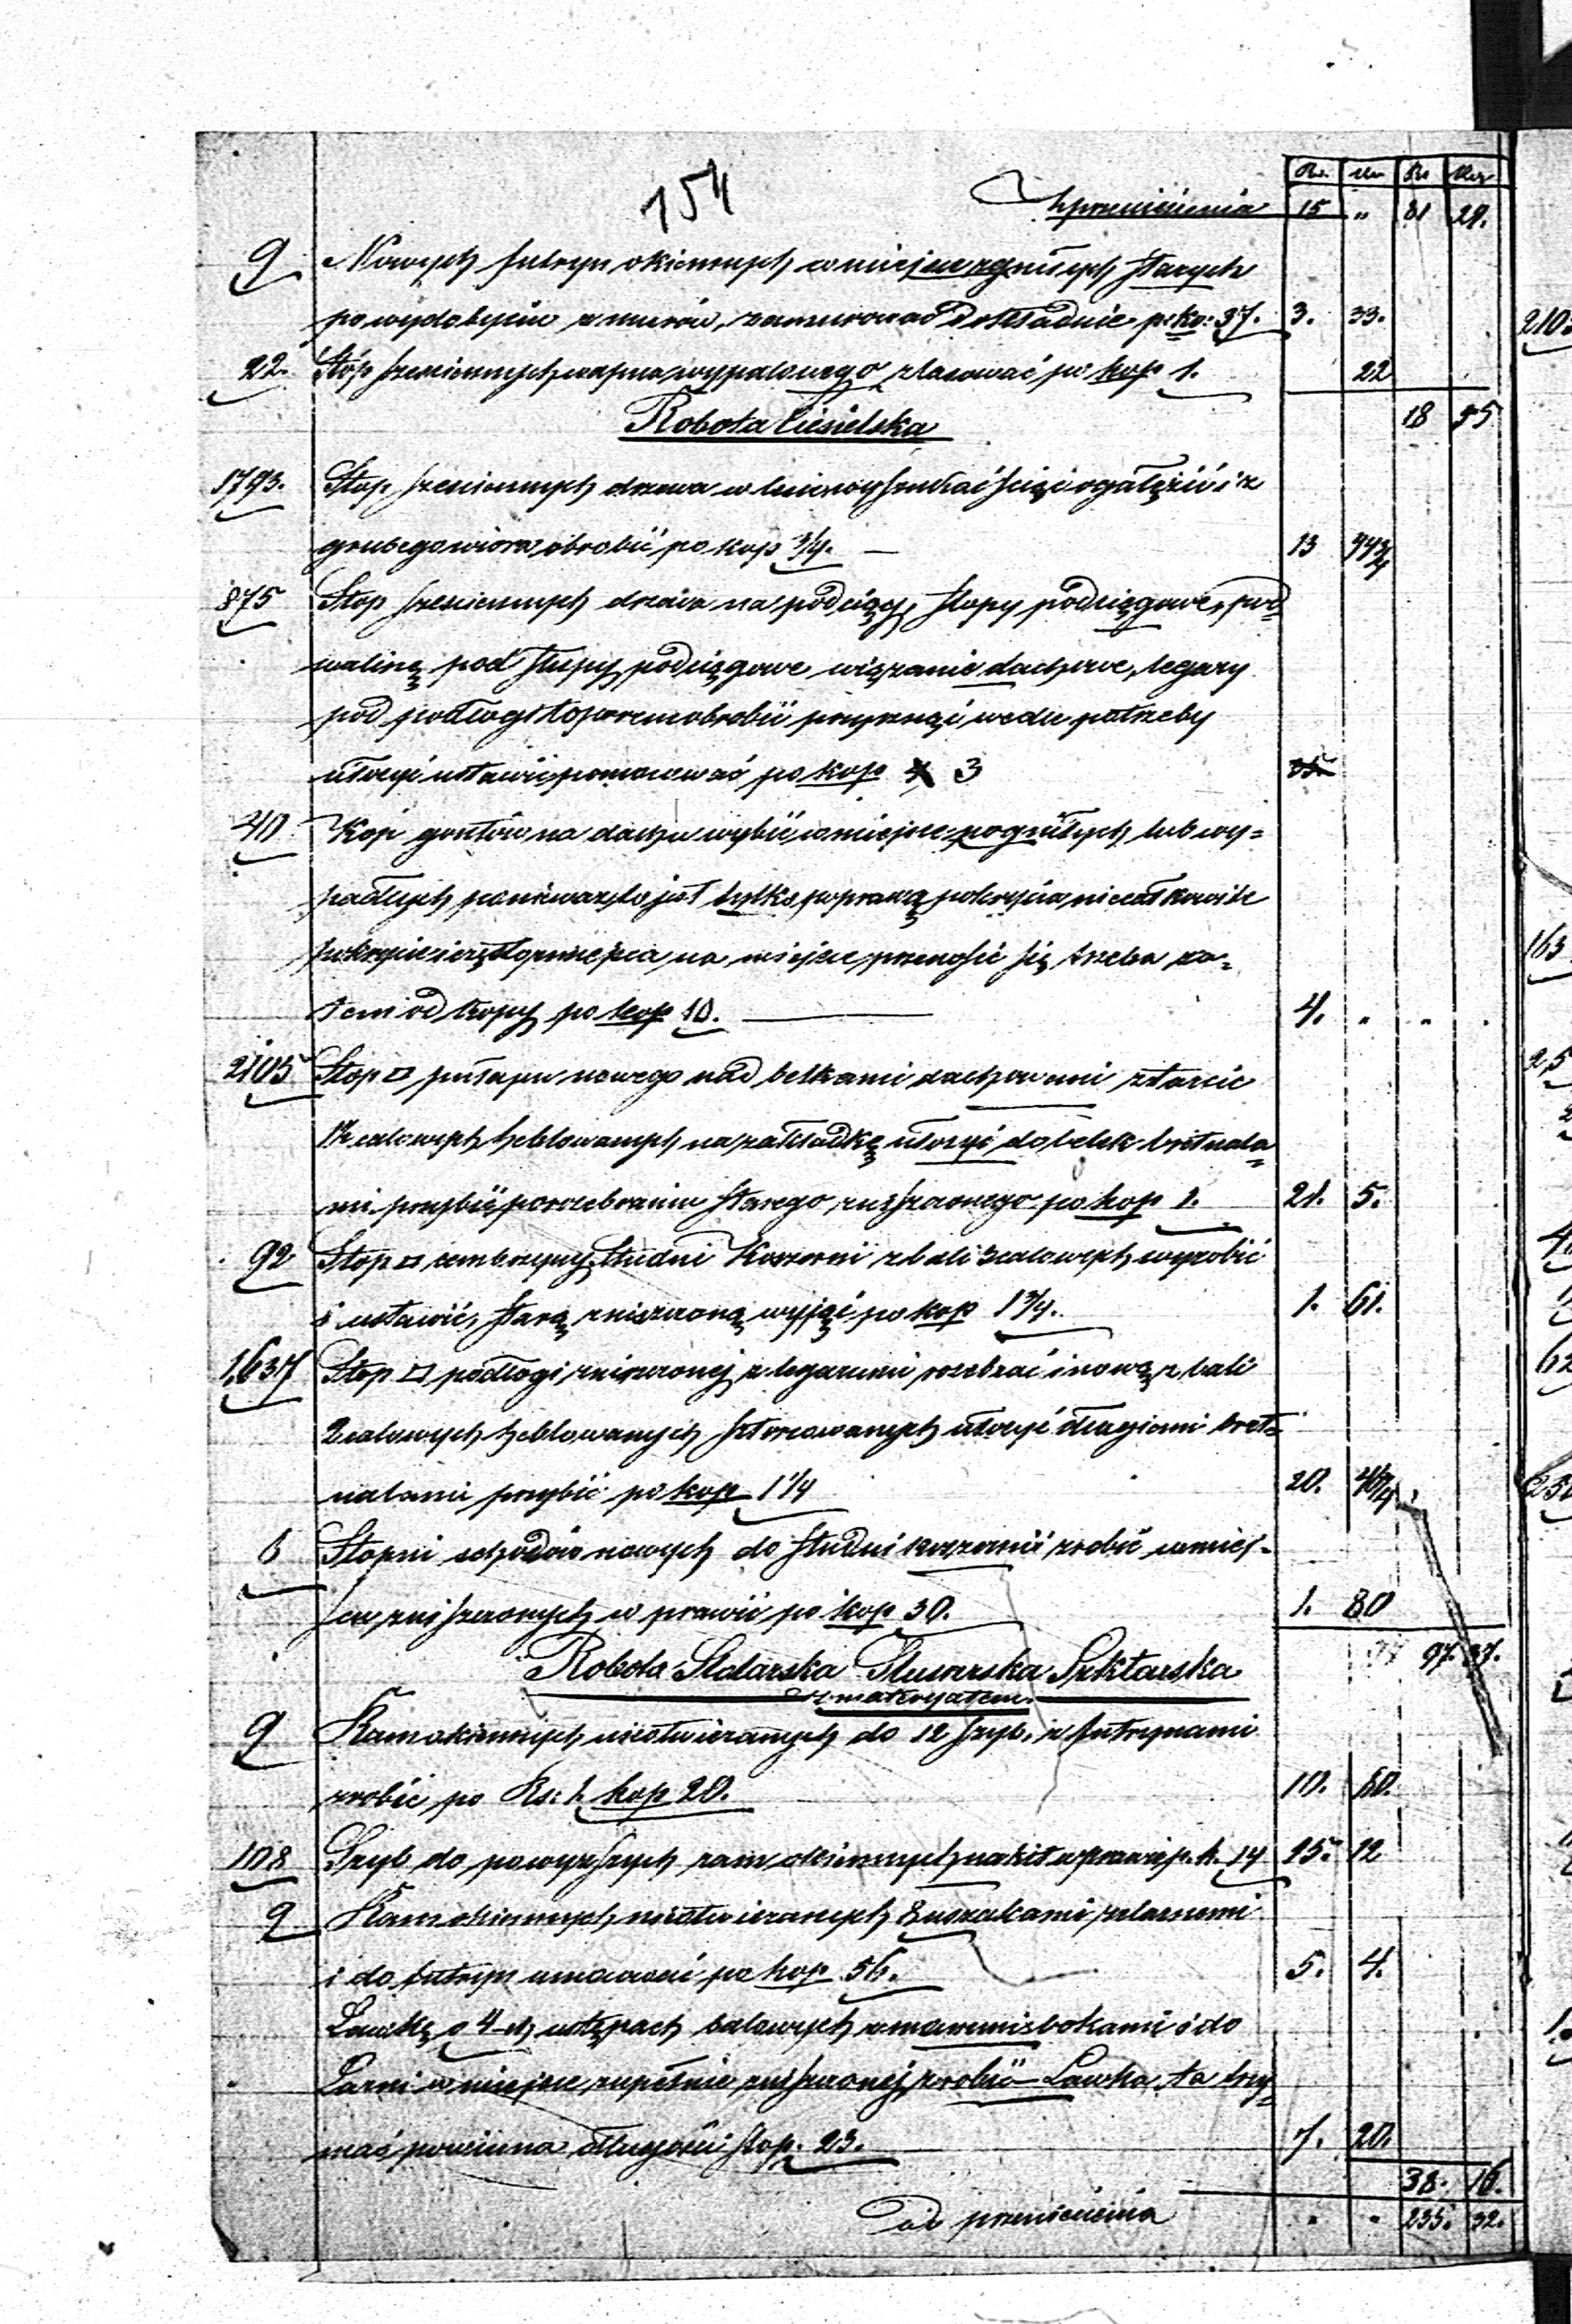 154
Rs. Ko Rs Kop
z przeniesienia 15 " 81 29.
9 Nowych futryn okiennych w miejsce zgniłych starych
po wydobyciu z murów, zamurować dokładnie p: ko: 37. 3. 33.
22. Stóp sześciennych wapna wypalonego zlasować po kop 1. 22
18 55
Robota Ciesielska
1793. Stop sześciennych drzewa w lesie wyszukać ściąć ogałęzić i z
grubego wióra obrobić po kop 3/4. 13 44 3/4
875 Stop sześciennych drzewa na podciągi, słupy podciągowe, pod=
walinę pod słupy podciągowe wiązanie dachowe, legary
pod podłogi toporem obrobić przyrznąć wedle potrzeby
ułożyć ustawić pomocować po kop 3
40 Kop gontów na dachu wybić w miejsce pogniłych lub wy=
padłych, ponieważ to jest tylko poprawą pokrycia, nie całkowite
pokrycie i
z miejsca na miejsce przenosić się trzeba za=
tem od kopy po kop 10. 4. " " .
2105 Stop □ pułapu nowego nad belkami dachowemi z tarcic
1½ calowych heblowanych na zakładkę ułożyć do belek bretnala=
mi przybić po rozebraniu starego zniszczonego po kop 1. 21. 5.
92 Stop □ cembrzyny Studni Koszarni z bali 3 calowych wyrobić
i ustawić, starą zniszczoną wyjąć po kop 1 3/4. 1. 61.
1,637 Stop □ podłogi zniszczonej z legarami rozebrać i nową z bali
2 calowych heblowanych sztorcowanych ułożyć długiemi bret=
nalami przybić po kop 1 1/4 20. 46 1/4
6 Stopni schodów nowych do studni zrobić w miej=
sce zniszczonych w prawić po kop 30. 1. 80
97. 37.
Robota Stolarska Ślusarska Szklarska
z materyałem.
9 Ram okiennych nieotwieranych do 12 szyb, z futrynami
zrobić po Rs: 1. kop 20. 10. 80.
108 Szyb do powyższych ram okiennych na kit wprawić p. k. 14 15. 12
9 Ram okiennych nieotwieranych 8 uszakami żelaznemi
i do futryn umocować po kop 56. 5. 4.
Ławkę o 4-ch ustępach calowych z bokami i do
Łazni w miejsce zupełnie zniszczonej zrobić Ławka ta trzy=
mać powinna długości stop. 23. 7. 20.
38. 16.
Do przeniesienia " " 235. 32.